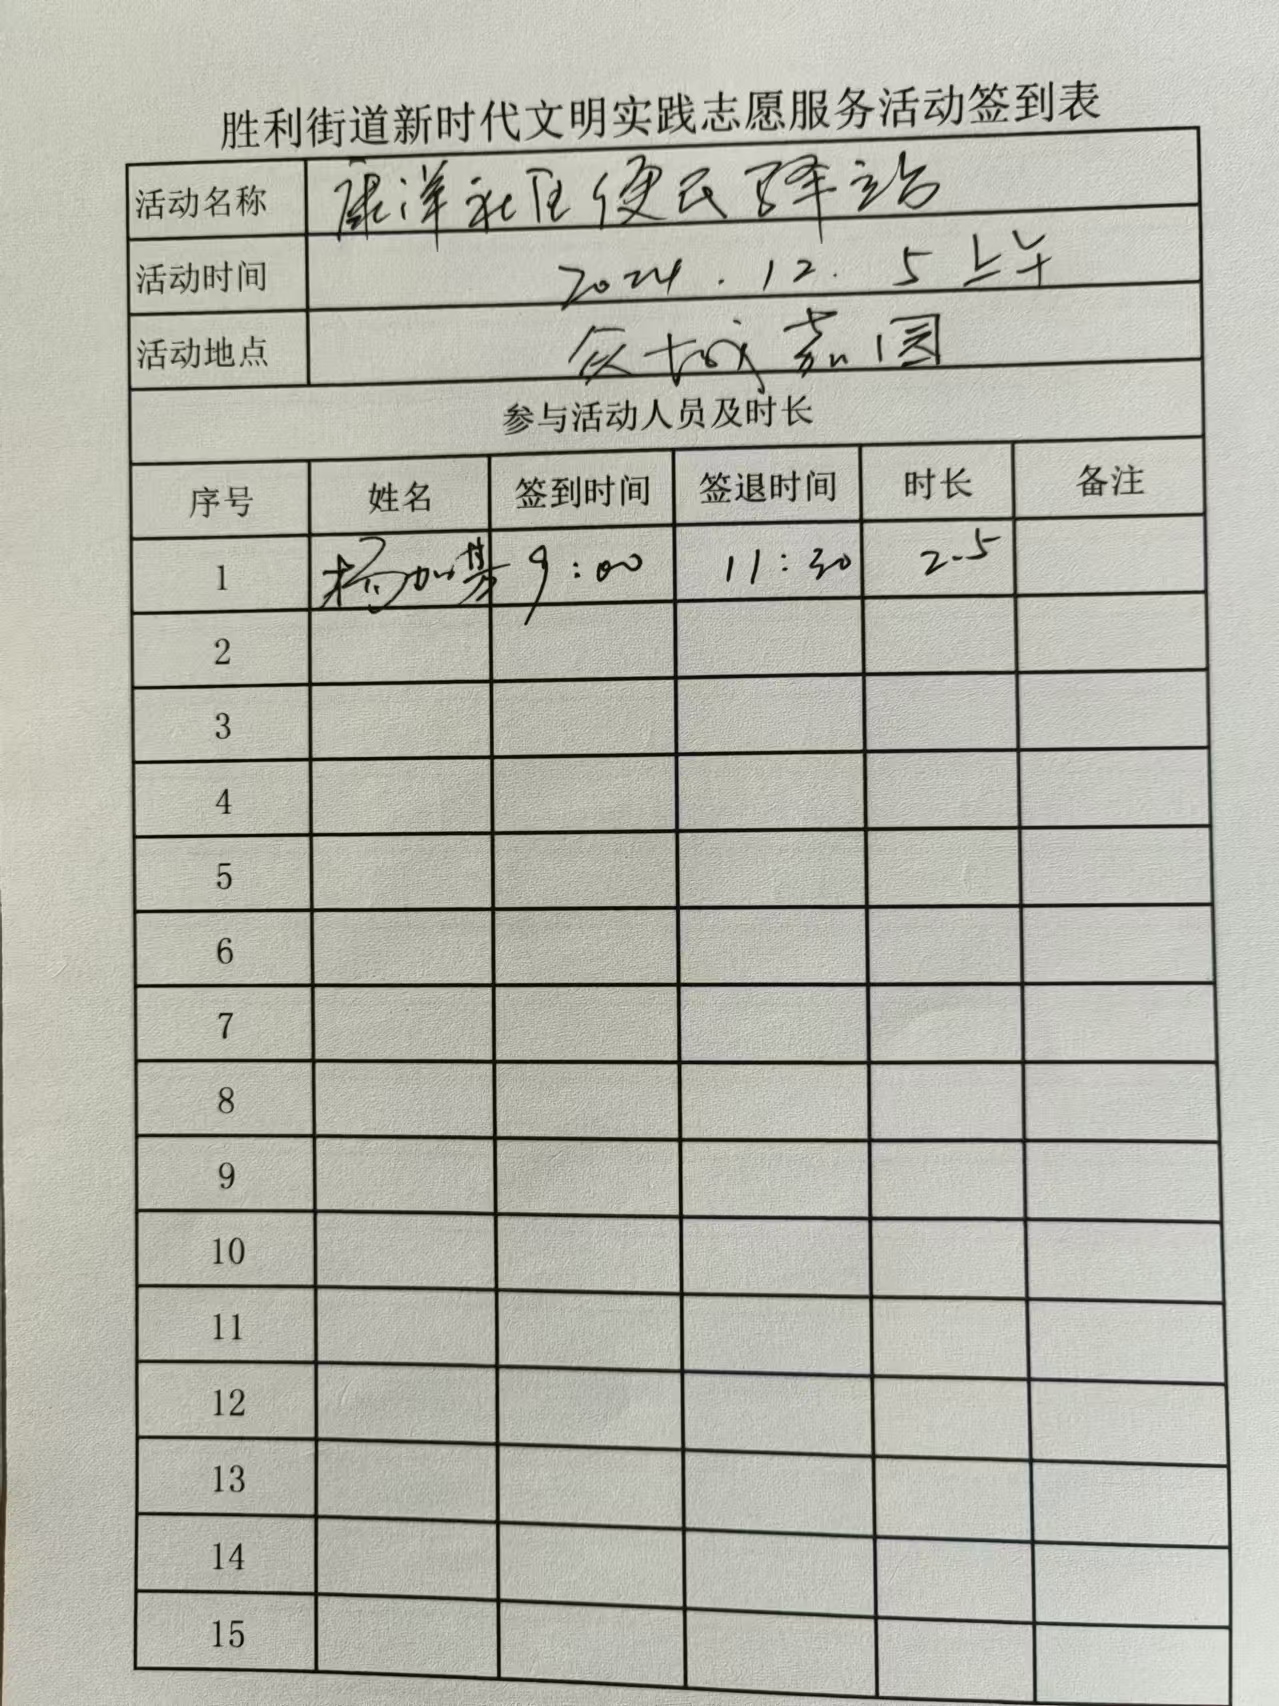 胜利街道新时代文明实践志愿服务活动签到表
活动名称 康洋社区便民驿站
活动时间 2024.12.5上午
活动地点 众城嘉园
参与活动人员及时长
序号 姓名 签到时间 签退时间 时长 备注
1 杨加 9:00 11:30 2.5
2
3
4
5
6
7
8
9
10
11
12
13
14
15